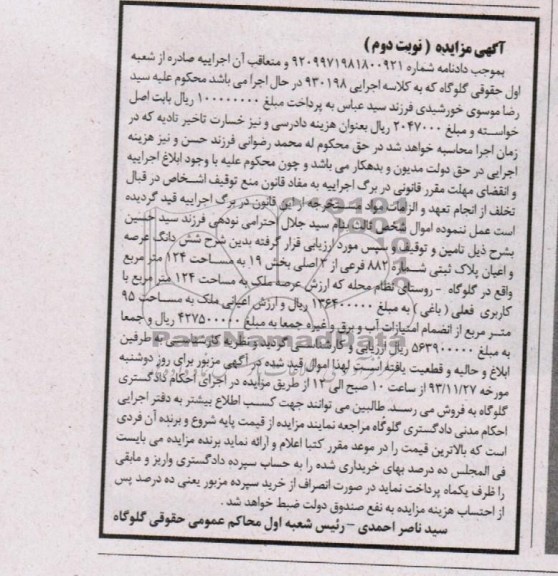 آگهی مزایده ( نوبت دوم )
بموجب دادنامه شماره ۹۲۰۹۹۷۱۹۸۱۸۰۰۹۲۱ و متعاقب آن اجراییه صادره از شعبه
اول حقوقی گلوگاه که به کلاسه اجرایی ۹۳۰۱۹۸ در حال اجرا می باشد محکوم علیه سید
رضا موسوی خورشیدی فرزند سید عباس به پرداخت مبلغ ۱۰۰۰۰۰۰۰۰ ریال بابت اصل
خواسته و مبلغ ۲۰۴۷۰۰۰ ریال بعنوان هزینه دادرسی و نیز خسارت تاخیر تادیه که در
زمان اجرا محاسبه خواهد شد در حق محکوم له محمد رضوانی فرزند حسن و نیز هزینه
اجرایی در حق دولت مدیون و بدهکار می باشد و چون محکوم علیه با وجود ابلاغ اجراییه
و انقضای مهلت مقرر قانونی در برگ اجراییه به مفاد قانون منع توقیف اشخاص در قبال
تخلف از انجام تعهد و الزامات مواد مستخرجه از این قانون در برگ اجراییه قید گردیده
است عمل ننموده اموال شخص ثالث بنام سید جلال احترامی نودهی فرزند سید حسین
بشرح ذیل تامین و توقیف و سپس مورد ارزیابی قرار گرفته بدین شرح شش دانگ عرصه
و اعیان پلاک ثبتی شماره ۸۸۲ فرعی از ۳ اصلی بخش ۱۹ به مساحت ۱۲۴ متر مربع
واقع در گلوگاه - روستای نظام محله که ارزش عرصه ملک به مساحت ۱۲۴ متر مربع با
کاربری فعلی ( باغی ) به مبلغ ۱۳۶۴۰۰۰۰۰ ریال و ارزش اعیانی ملک به مساحت ۹۵
متر مربع از انضمام امتیازات آب و برق و غیره جمعا به مبلغ ۴۲۷۵۰۰۰۰۰ ریال و جمعا
به مبلغ ۵۶۳۹۰۰۰۰۰ ریال ارزیابی و کارشناسی گردیده و نظریه کارشناسی به طرفین
ابلاغ و حالیه و قطعیت یافته است لهذا اموال قید شده در آگهی مزبور برای روز دوشنبه
مورخه ۹۳/۱۱/۲۷ از ساعت ۱۰ صبح الی ۱۲ از طریق مزایده در اجرای احکام دادگستری
گلوگاه به فروش می رسد. طالبین می توانند جهت کسب اطلاع بیشتر به دفتر اجرایی
احکام مدنی دادگستری گلوگاه مراجعه نمایند مزایده از قیمت پایه شروع و برنده آن فردی
است که بالاترین قیمت را در موعد مقرر کتبا اعلام و ارائه نماید برنده مزایده می بایست
فی المجلس ده درصد بهای خریداری شده را به حساب سپرده دادگستری واریز و مابقی
را ظرف یکماه پرداخت نماید در صورت انصراف از خرید سپرده مزبور یعنی ده درصد پس
از احتساب هزینه مزایده به نفع صندوق دولت ضبط خواهد شد .
سید ناصر احمدی - رئیس شعبه اول محاکم عمومی حقوقی گلوگاه